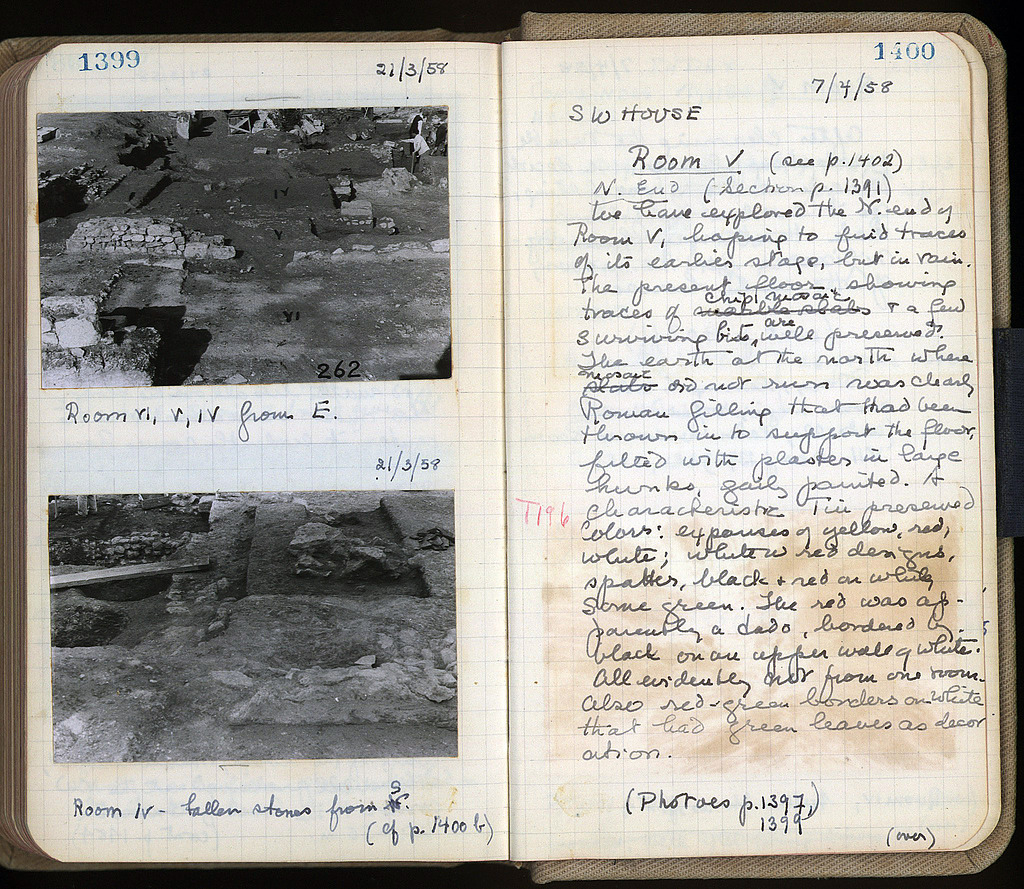 1399
21/3/58
IV
V
VI
262
Room VI, V, IV from E.
21/3/58
Room IV - fallen stones from S.
(cf p. 1400 b)
1400
7/4/58
SW HOUSE
Room V (see p. 1402)
N. End (Section p. 1391)
We have explored the N. end of
Room V, hoping to find traces
of its earlier stage, but in vain.
The present floor, showing
chip mosaic
traces of marble slabs & a few
are
surviving bits, well preserved.
The earth at the north where
mosaic
slabs did not run was clearly
Roman filling that had been
thrown in to support the floor,
filled with plaster in large
hunks, gaily painted. A
T196
characteristic Tin preserved
Colors: expanses of yellow, red,
white; white w red designs,
spatter, black & red on white
Some green. The red was ap-
parently a dado, bordered by
black on an upper wall of white.
All evidently not from one room.
Also red-green borders on white
that had green leaves as decor
ation.
(Photoes p. 1397,)
1399
(over)